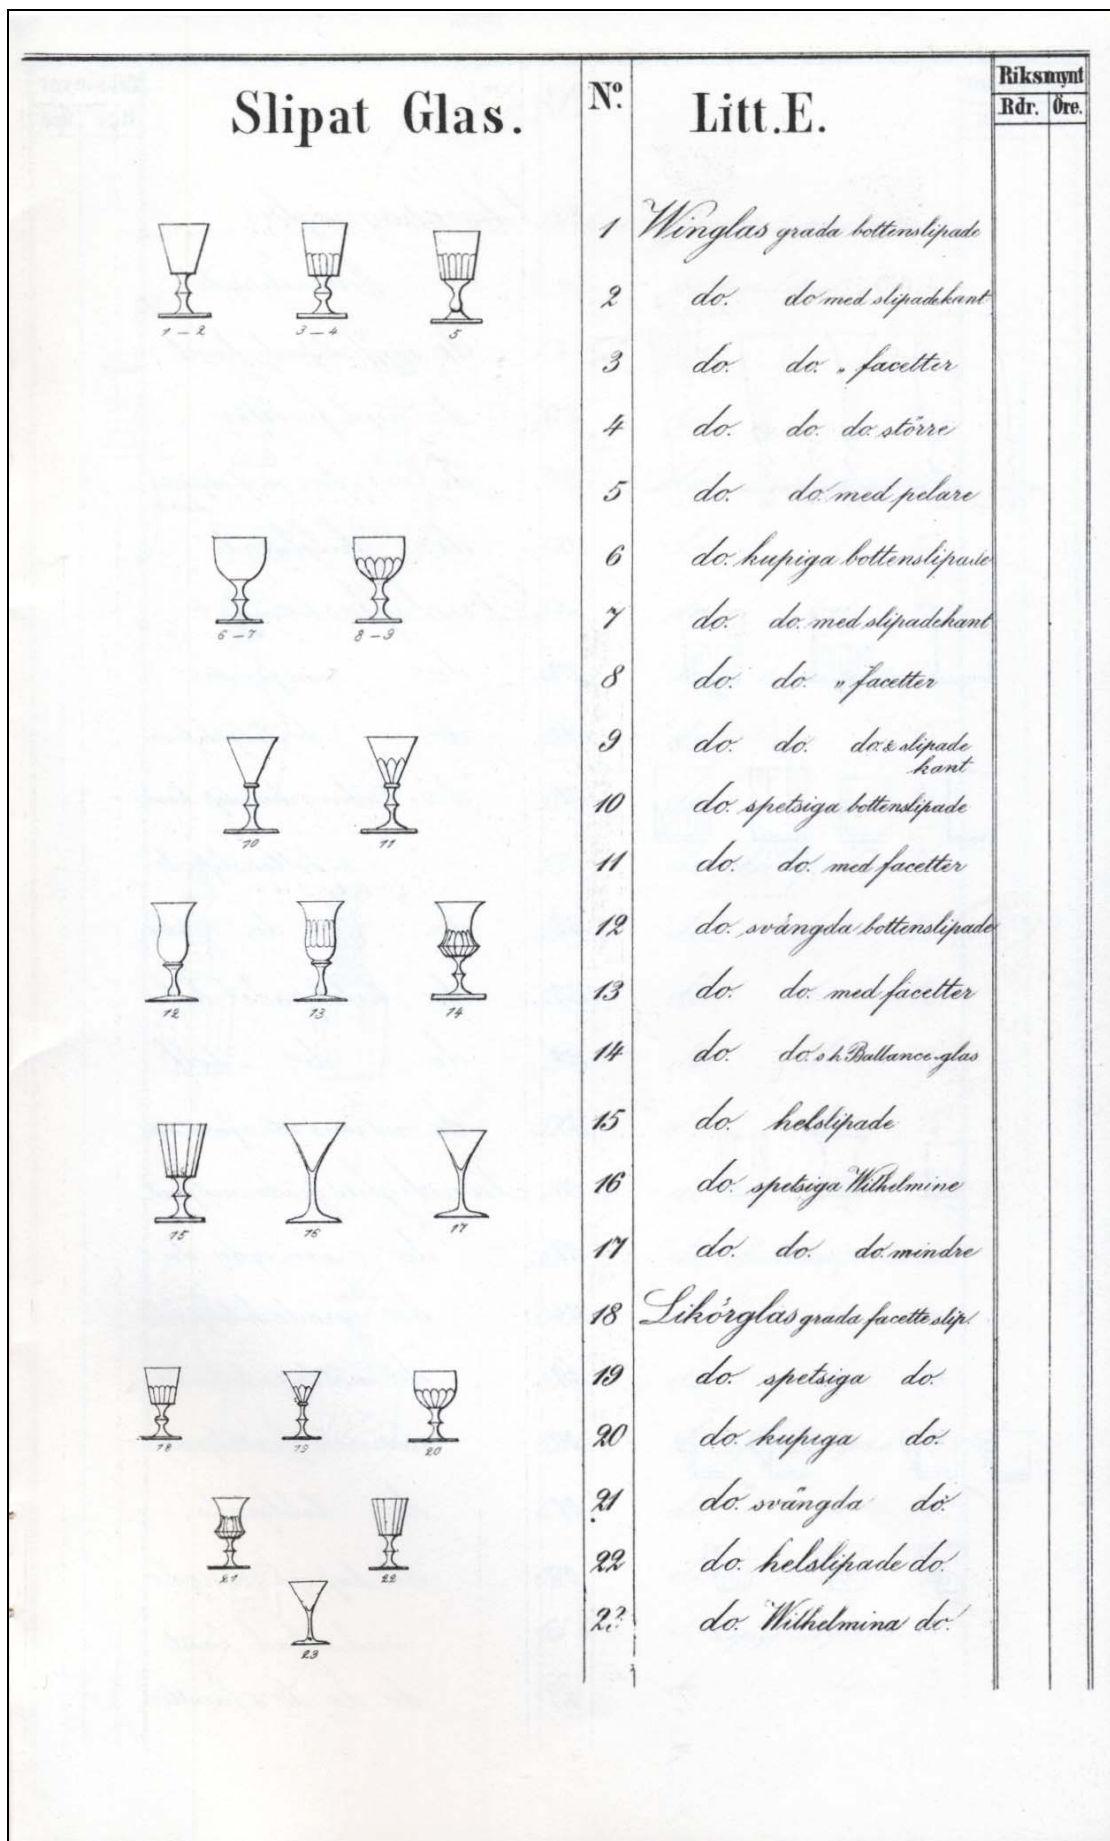 Slipat Glas.
Nº.
Litt. E.
Riksmynt
Rdr. Öre.
1 Winglas grada bottenslipade
2 do. do med slipadekant
3 do. do. „ facetter
4 do. do. do. större
5 do. do. med pelare
6 do. kupiga bottenslipade
7 do. do. med slipadekant
8 do. do. „ facetter
9 do. do. do. & slipade
kant
10 do. spetsiga bottenslipade
11 do. do. med facetter
12 do. svängda bottenslipade
13 do. do. med facetter
14 do. do. s k Ballance-glas
15 do. helslipade
16 do. spetsiga Wilhelmine
17 do. do. do. mindre
18 Likörglas grada facette slip.
19 do. spetsiga do.
20 do. kupiga do.
21 do. svängda do.
22 do. helslipade do.
23 do. Wilhelmina do.
1 – 2
3 – 4
5
6 – 7
8 – 9
10
11
12
13
14
15
16
17
18
19
20
21
22
23